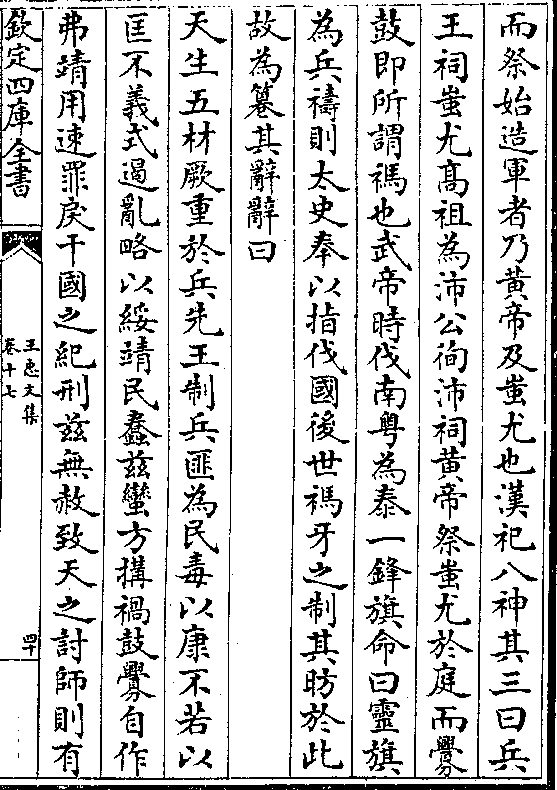 而祭始造軍者乃黃帝及蚩尤也漢祀八神其三曰兵
王祠蚩尤髙祖為沛公徇沛祠黃帝祭蚩尤於庭而釁
鼓即所謂禡也武帝時伐南粤為泰一鋒旗命曰靈旗
為兵禱則太史奉以指伐國後世禡牙之制其昉於此
故為篹其辭辭曰
天生五材厥重於兵先王制兵匪為民毒以康不若以
匡不義式遏亂略以綏靖民蠢兹蠻方搆禍鼓釁自作
弗靖用速罪戾干國之紀刑兹無赦致天之討師則有
欽定四庫全書
王忠文集
卷十七
四十